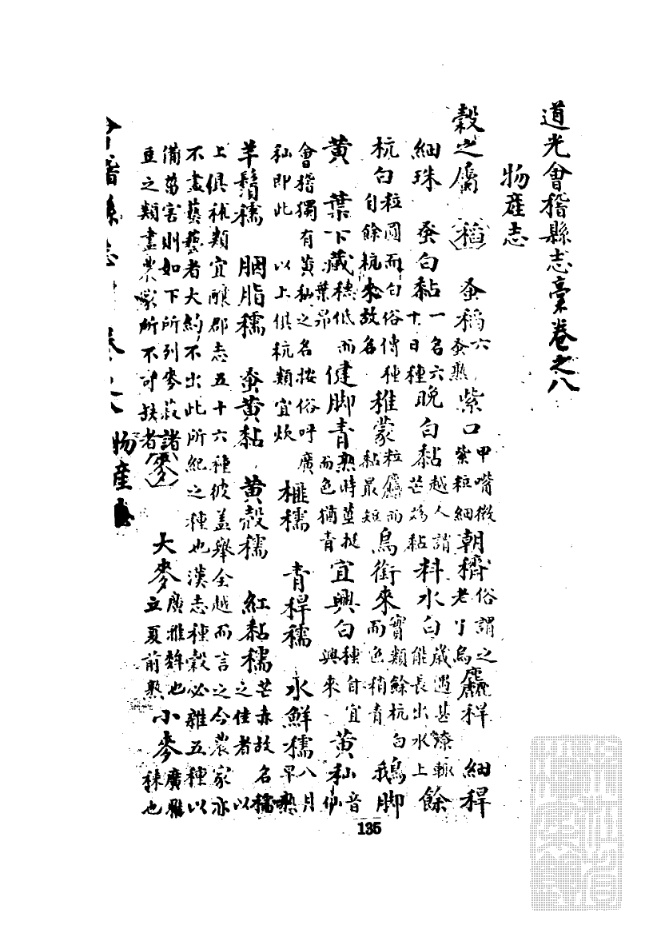 道光會稽縣志稾卷之八
物產志
穀之屬 稻 蚤稻六蚤熟 紫口甲嘴微紫粒細 朝穧俗謂之老丫烏 麤稈 細稈
細珠 蚤白黏一名六十日種 晚白黏越人謂芒為黏 料水白歲遇甚潦輒能長出水上 餘
杭白粒圓而白俗傳種自餘杭來故名 稚蒙粒麤而黏最短 烏銜來實類餘杭白而色稍青 鵝脚
黃 葉下藏穗低而葉昂 健脚青熟時莖挺而色猶青 宜興白種自宜興來 黃秈音仙
會稽獨有黃秈之名按俗呼廣秈即此 以上俱杭類宜炊 榧穤 青稈穤 水鮮穤八月早熟
羊鬚穤 胭脂穤 蚤黃黏 黃殼穤 紅黏穤芒赤故名穤之佳者 以
上俱秫類宜釀郡志五十六種彼蓋舉全越而言之今農家亦
不盡藝藝者大約不出此所紀之種也漢志種穀必雜五種以
備菑害則如下所列麥菽諸豆之類盡農家所不可扶者 麥 大麥廣雅麰也立夏前熟 小麥廣雅䅘也
會稽縣志 卷之八 物產志
135